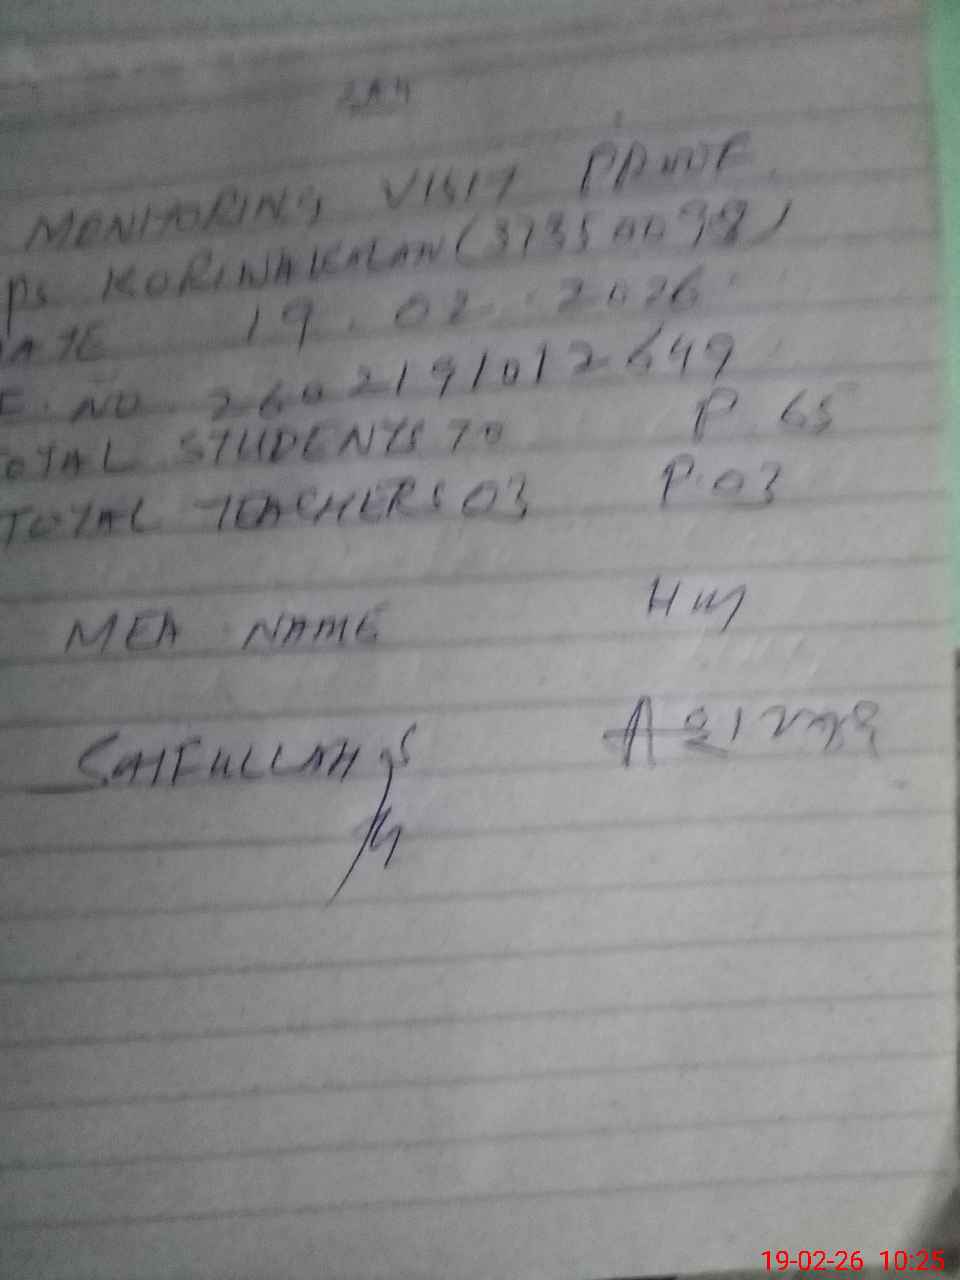 MONITORING VISIT PROOF
PS KORINAKALAN (37350098)
DATE 19.02.2026
E.NO. 2602191012649
TOTAL STUDENTS 70 P. 65
TOTAL TEACHERS 03 P.03
MEA NAME
SAIFULLAH
19-02-26 10:25